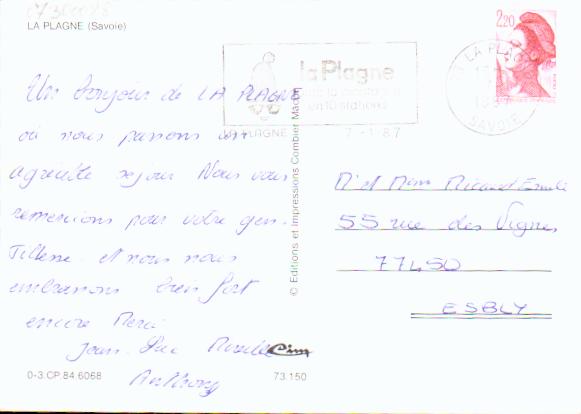 LA PLAGNE (Savoie)
2,20
la Plagne
en 10 stations
LA PLAGNE
7 -1.87
LA PLAGNE
SAVOIE
Un bonjour de LA PLAGNE
ou nous passons un
agréable sejour Nous vous
remercions pour votre gen-
tillesse et nous nous
embrassons bien fort
encore Merci
Jean-Luc
Anthony
© Editions et Impressions Combier Macon
Mr et Mme
55 rue des Vignes
77450
ESBLY
0-3.CP.84.6068
73.150
Cim